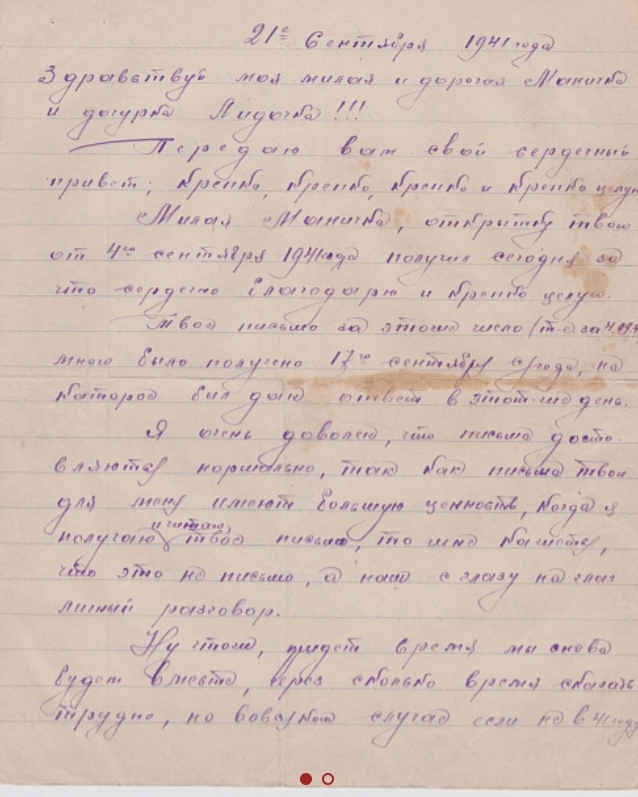 21е Сентября 1941 года
Здравствуй моя милая и дорогая Маничка
и дочурка Лидочка!!!
Передаю вам свой сердечный
привет; крепко, крепко, крепко и крепко целую
Милая Маничка, открытку твою
от 4го сентября 1941 года получил сегодня за
что сердечно благодарю и крепко целую.
Твое письмо за этоже число (т-е за 4.09.4
мною было получено 17го сентября с/года, на
каторое был дан ответ в этот-же день.
Я очень доволен, что письма досто-
вляются нормально, так как письма твои
для меня имеют большую ценность, когда я
и читаю
получаю твое письмо, то мне кажется,
что это не письмо, а наш с глазу на глаз
личный разговор.
Ну чтож, придет время мы снова
будем вместе, через сколько время сказать
трудно, но вовсяком случае если не в 41 году